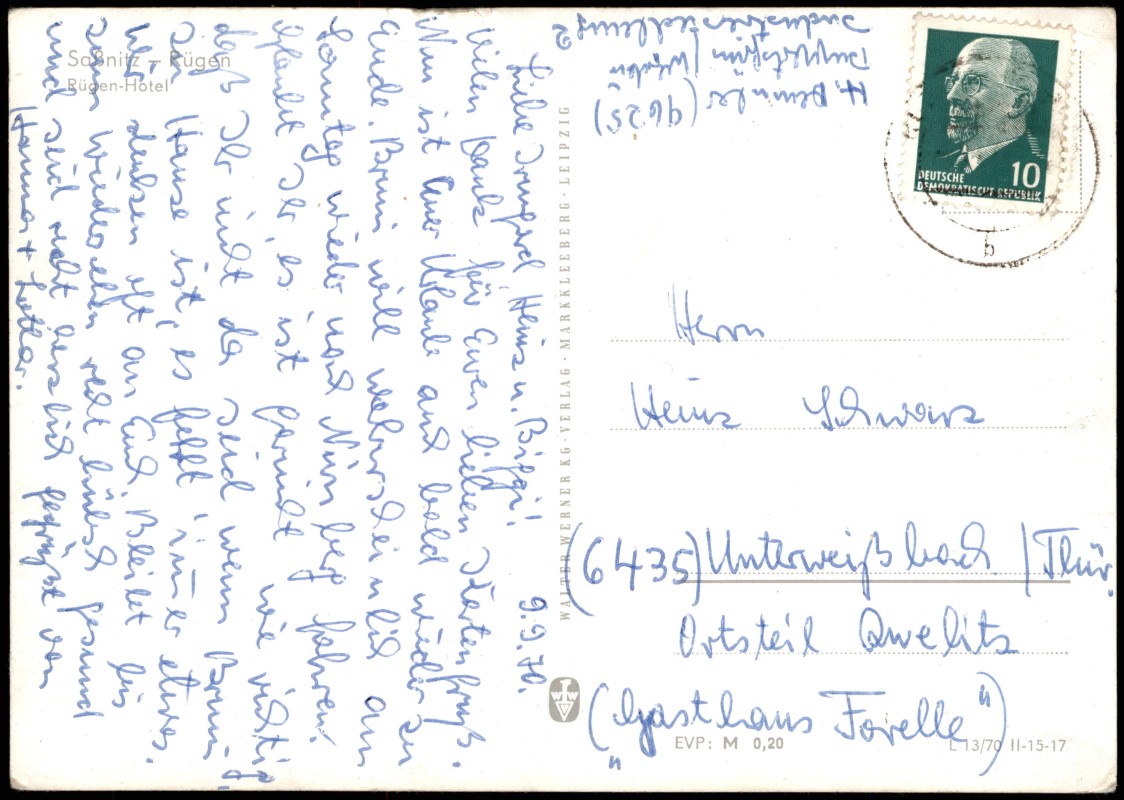 Saßnitz – Rügen
Rügen-Hotel
9.9.70.
Liebe Irmgard, Heinz u. Biggi!
Vielen Dank für Euren lieben Kartengruß.
Nun ist Euer Urlaub auch bald wieder zu
Ende. Bruni will wahrscheinlich am
Sonntag wieder nach Nürnberg fahren.
Glaubt Ihr, es ist garnicht wie richtig
daß Ihr nicht da seid wenn Bruni
zu Hause ist, es fehlt immer etwas.
Wir denken oft an Euch. Bleibt bis
zum Wiedersehen recht hübsch gesund
und seid recht herzlich gegrüßt von
Hanna + Lothar.
WALTER WERNER KG · VERLAG · MARKKLEEBERG · LEIPZIG
(9625)
2
DEUTSCHE
DEMOKRATISCHE REPUBLIK
10
b
Herrn
Heinz Schwarz
(6435) Unterweißbach / Thür.
Ortsteil Quelitz
("Gasthaus Forelle")
EVP: M 0,20
L 13/70 II-15-17